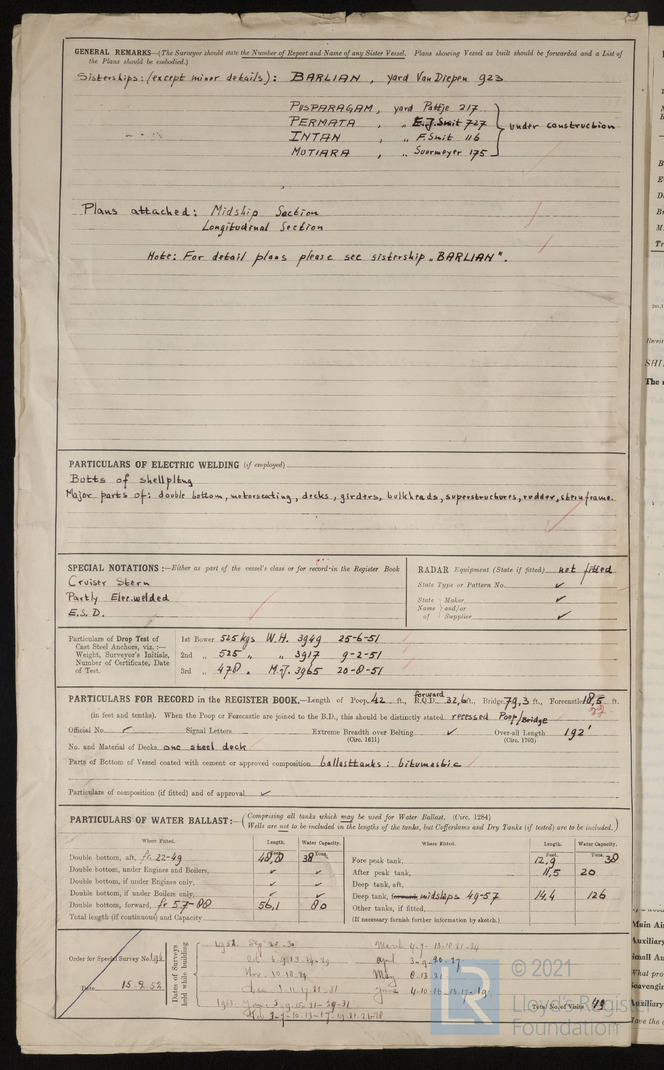 GENERAL REMARKS—(The Surveyor should state the Number of Report and Name of any Sister Vessel. Plans showing Vessel as built should be forwarded and a List of
the Plans should be embodied.)
Sisterships: (except minor details): BARLIAN, yard Van Diepen 923
PERPARAGAM, yard Pattje 217
PERMATA, " E.J. Smit 727
INTAN, " F. Smit 116
MUTIARA, " Suurmeyer 175
under construction
Plans attached: Midship Section
Longitudinal Section
Note: For detail plans please see sistership "BARLIAN".
PARTICULARS OF ELECTRIC WELDING (if employed)
Butts of shellpltng
Major parts of: double bottom, motorseating, decks, girders, bulkheads, superstructures, rudder, sternframe.
SPECIAL NOTATIONS:—Either as part of the vessel's class or for record in the Register Book
Cruiser Stern
Partly Elec. welded
E.S.D.
RADAR Equipment (State if fitted) not fitted
State Type or Pattern No. ✓
State Name of Maker and/or Supplier ✓ ✓
Particulars of Drop Test of Cast Steel Anchors, viz.:—Weight, Surveyor's Initials, Number of Certificate, Date of Test.
1st Bower 525 kgs W.H. 3949 25-6-51
2nd " 525 " " 3917 9-2-51
3rd " 478 " M.J. 3965 20-8-51
PARTICULARS FOR RECORD in the REGISTER BOOK.—Length of Poop 42 ft., forward R.Q.D. 32,6 ft., Bridge 79,3 ft., Forecastle 18,5 ft.
(in feet and tenths). When the Poop or Forecastle are joined to the B.D., this should be distinctly stated recessed Poop/Bridge
Official No. ✓ Signal Letters Extreme Breadth over Belting (Circ. 1611) ✓ Over-all Length (Circ. 1703) 192'
No. and Material of Decks one steel deck
Parts of Bottom of Vessel coated with cement or approved composition ballasttanks: bitumastic
Particulars of composition (if fitted) and of approval ✓
PARTICULARS OF WATER BALLAST:— (Comprising all tanks which may be used for Water Ballast. (Circ. 1284)
Wells are not to be included in the lengths of the tanks, but Cofferdams and Dry Tanks (if tested) are to be included.)
Where Fitted. Length. Water Capacity. Where Fitted. Length. Water Capacity.
Double bottom, aft, fr. 22-49 48,8 38 Fore peak tank, 12,9 38
Double bottom, under Engines and Boilers, ✓ ✓ After peak tank, 11,5 20
Double bottom, if under Engines only, ✓ ✓ Deep tank, aft,
Double bottom, if under Boilers only, ✓ ✓ Deep tank, forward, midships 49-57 14,4 126
Double bottom, forward, fr 57-88 56,1 80 Other tanks, if fitted,
Total length (if continuous) and Capacity (If necessary furnish further information by sketch.)
Order for Special Survey No.
Date 15.9.52
Dates of Surveys held while building
Total No. of Visits 49
© 2021
Lloyd's Register
Foundation
LR